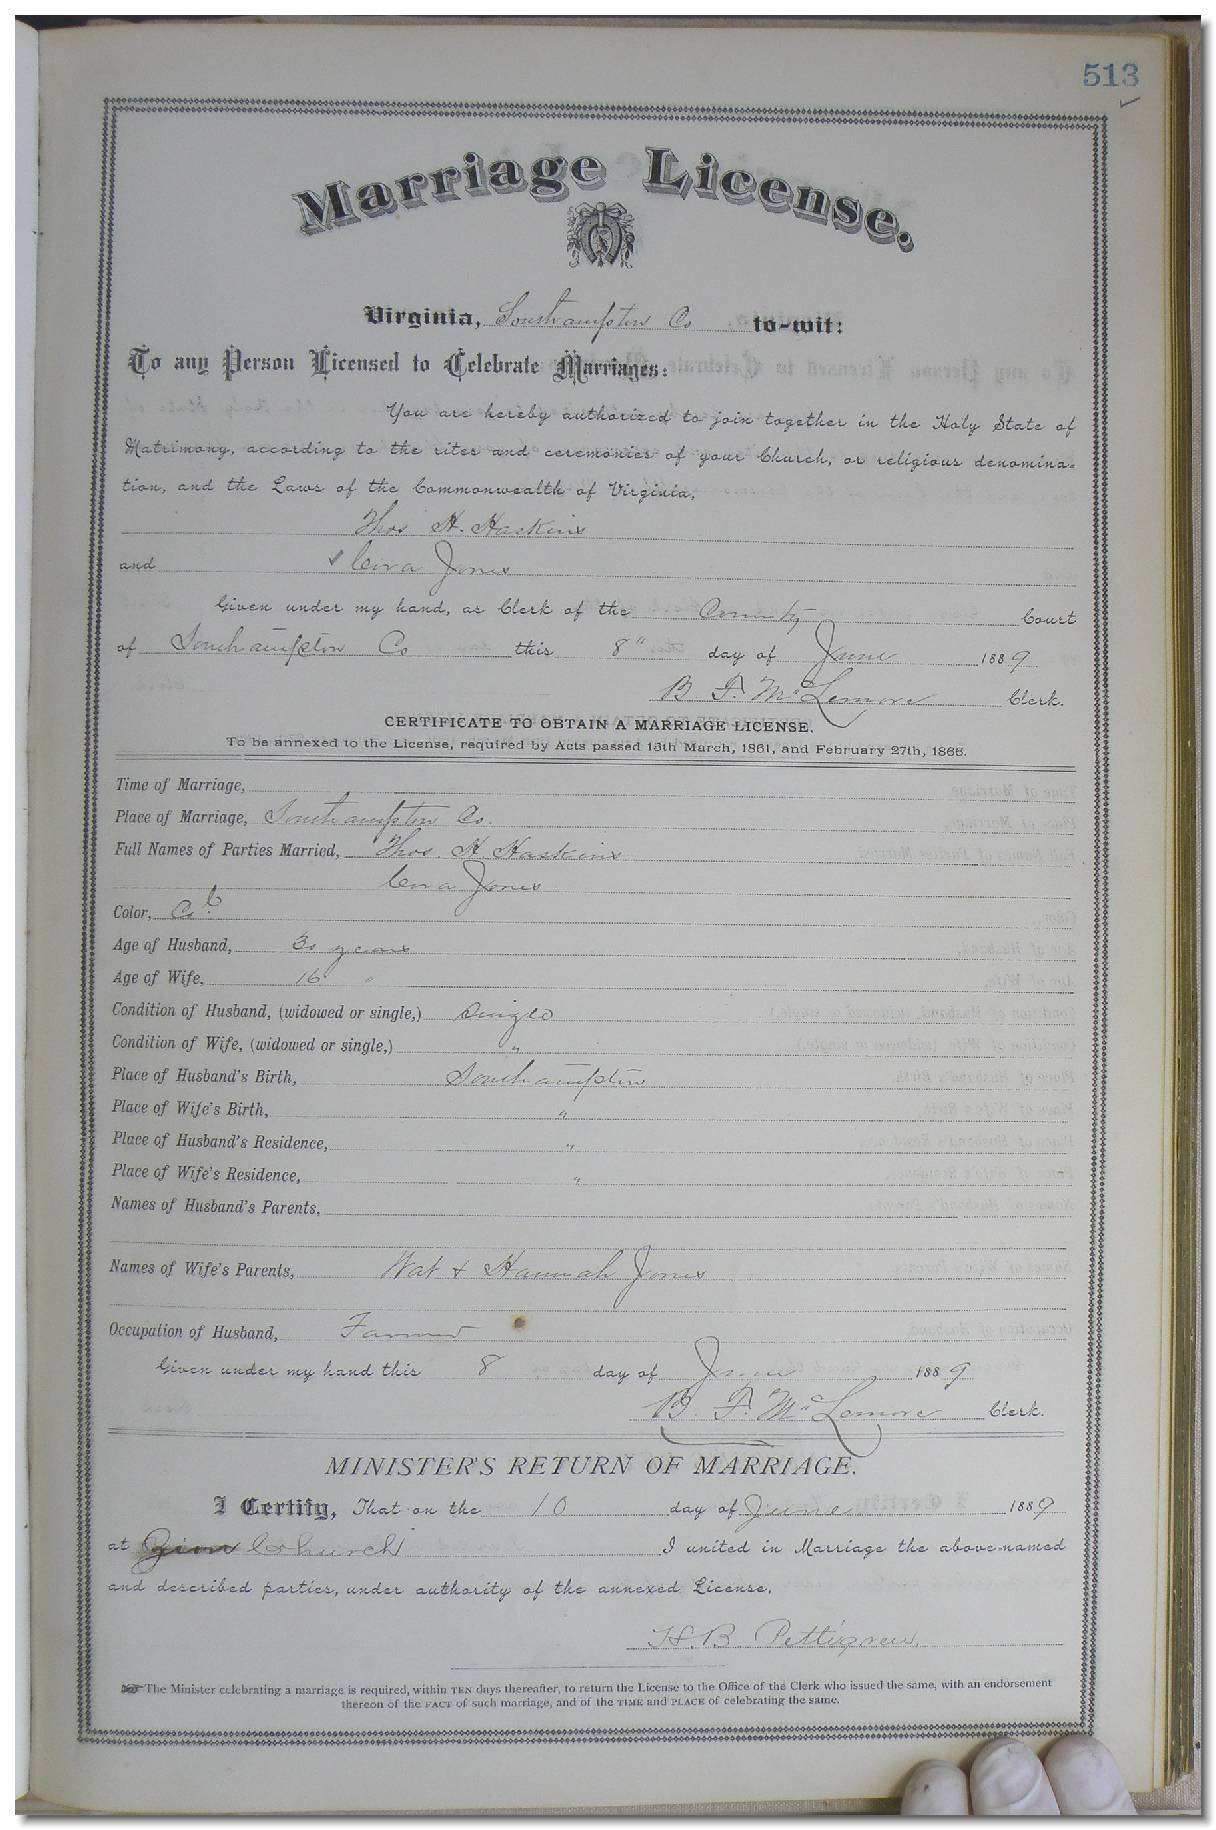 513
Marriage License.
Virginia, Southampton Co to-wit:
To any Person Licensed to Celebrate Marriages:
You are hereby authorized to join together in the Holy State of
Matrimony, according to the rites and ceremonies of your Church, or religious denomina-
tion, and the Laws of the Commonwealth of Virginia,
Thos H. Haskins
and Jones
Given under my hand, as Clerk of the County Court
of Southampton Co this 8" day of June 1889
B. F. McLemore Clerk.
CERTIFICATE TO OBTAIN A MARRIAGE LICENSE.
To be annexed to the License, required by Acts passed 15th March, 1861, and February 27th, 1866.
Time of Marriage,
Place of Marriage, Southampton Co.
Full Names of Parties Married, Thos. H Haskins
Jones
Color, Cold
Age of Husband, 30 years
Age of Wife, 16 "
Condition of Husband, (widowed or single,) Single
Condition of Wife, (widowed or single,) "
Place of Husband's Birth, Southampton
Place of Wife's Birth, "
Place of Husband's Residence, "
Place of Wife's Residence, "
Names of Husband's Parents,
Names of Wife's Parents, Nat + Hannah Jones
Occupation of Husband, Farmer
Given under my hand this 8 day of June 1889
B. F. McLemore Clerk.
MINISTER'S RETURN OF MARRIAGE.
I Certify, That on the 10 day of June 1889
at Zion Church I united in Marriage the above-named
and described parties, under authority of the annexed License.
H. B. Pettigrew.
The Minister celebrating a marriage is required, within TEN days thereafter, to return the License to the Office of the Clerk who issued the same, with an endorsement
thereon of the FACT of such marriage, and of the TIME and PLACE of celebrating the same.